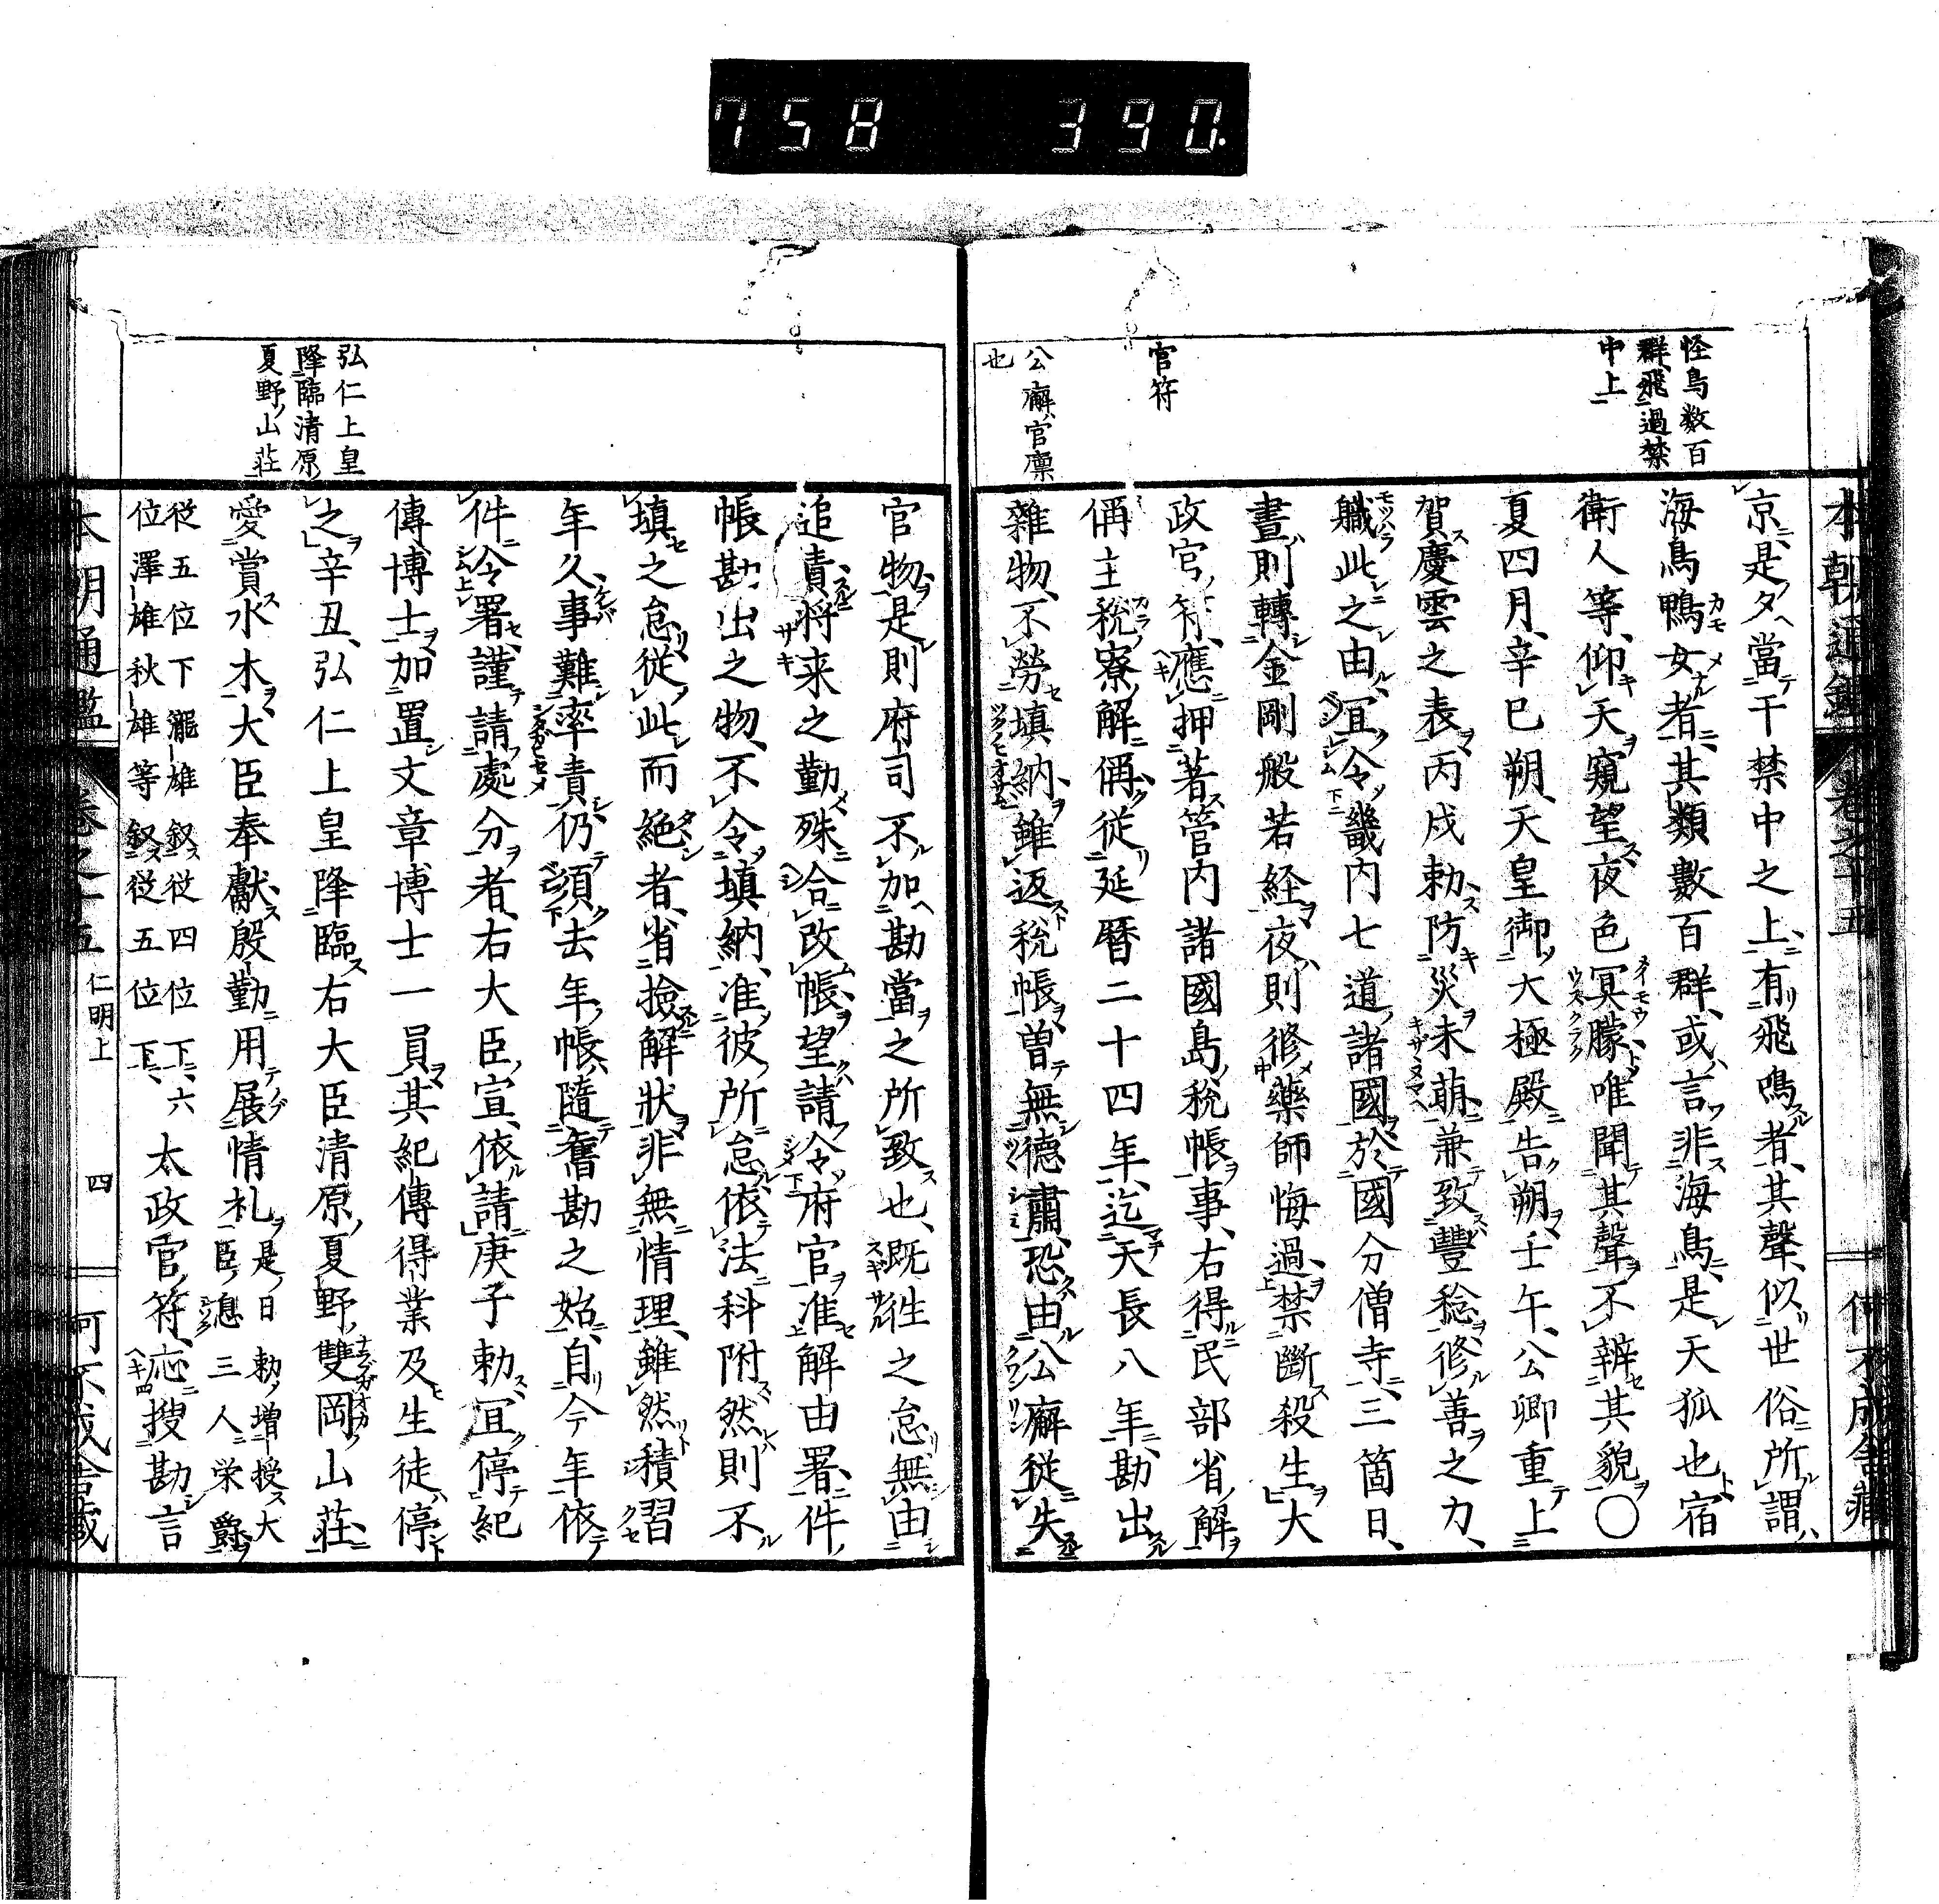 758 390.
怪鳥数百
群飛過禁
中上
官符
公廨官稟
也
京是夕當干禁中之上有飛鳴者其聲似世俗所謂
海鳥鴨女者其類數百群或言非海鳥是天狐也宿
衛人等仰天窺望夜色冥朦唯聞其聲不辨其貌〇
夏四月辛巳朔天皇御大極殿告朔壬午公卿重上
賀慶雲之表丙戌勅防災未萌兼致豐稔修善之力
職此之由冝令畿内七道諸國於國分僧寺三箇日
晝則轉金剛般若経夜則修藥師悔過禁斷殺生大
政官符應押著管内諸國島税帳事右得民部省解
偁主税寮解偁従延暦二十四年迄天長八年勘出
雜物不勞填納雖返税帳曽無德肅恐由公廨従失
弘仁上皇
降臨清原
夏野山荘
官物是則府司不加勘當之所致也既往之怠無由
追責将来之勤殊合改帳望請令府官准解由署件
帳勘出之物不令填納准彼所怠依法科附然則不
填之怠従此而絶者省撿解状非無情理雖然積習
年久事難率責仍須去年帳隨舊勘之始自今年依
件令署謹請處分者右大臣宣依請庚子勅冝停紀
傳博士加置文章博士一員其紀傳得業及生徒停
之辛丑弘仁上皇降臨右大臣清原夏野雙岡山荘
愛賞水木大臣奉獻殷勤用展情礼是日勅増授大
臣息三人栄爵
従五位下瀧雄叙従四位下六
位澤雄秋雄等叙従五位下
太政官符應搜勘言
仁明上
四